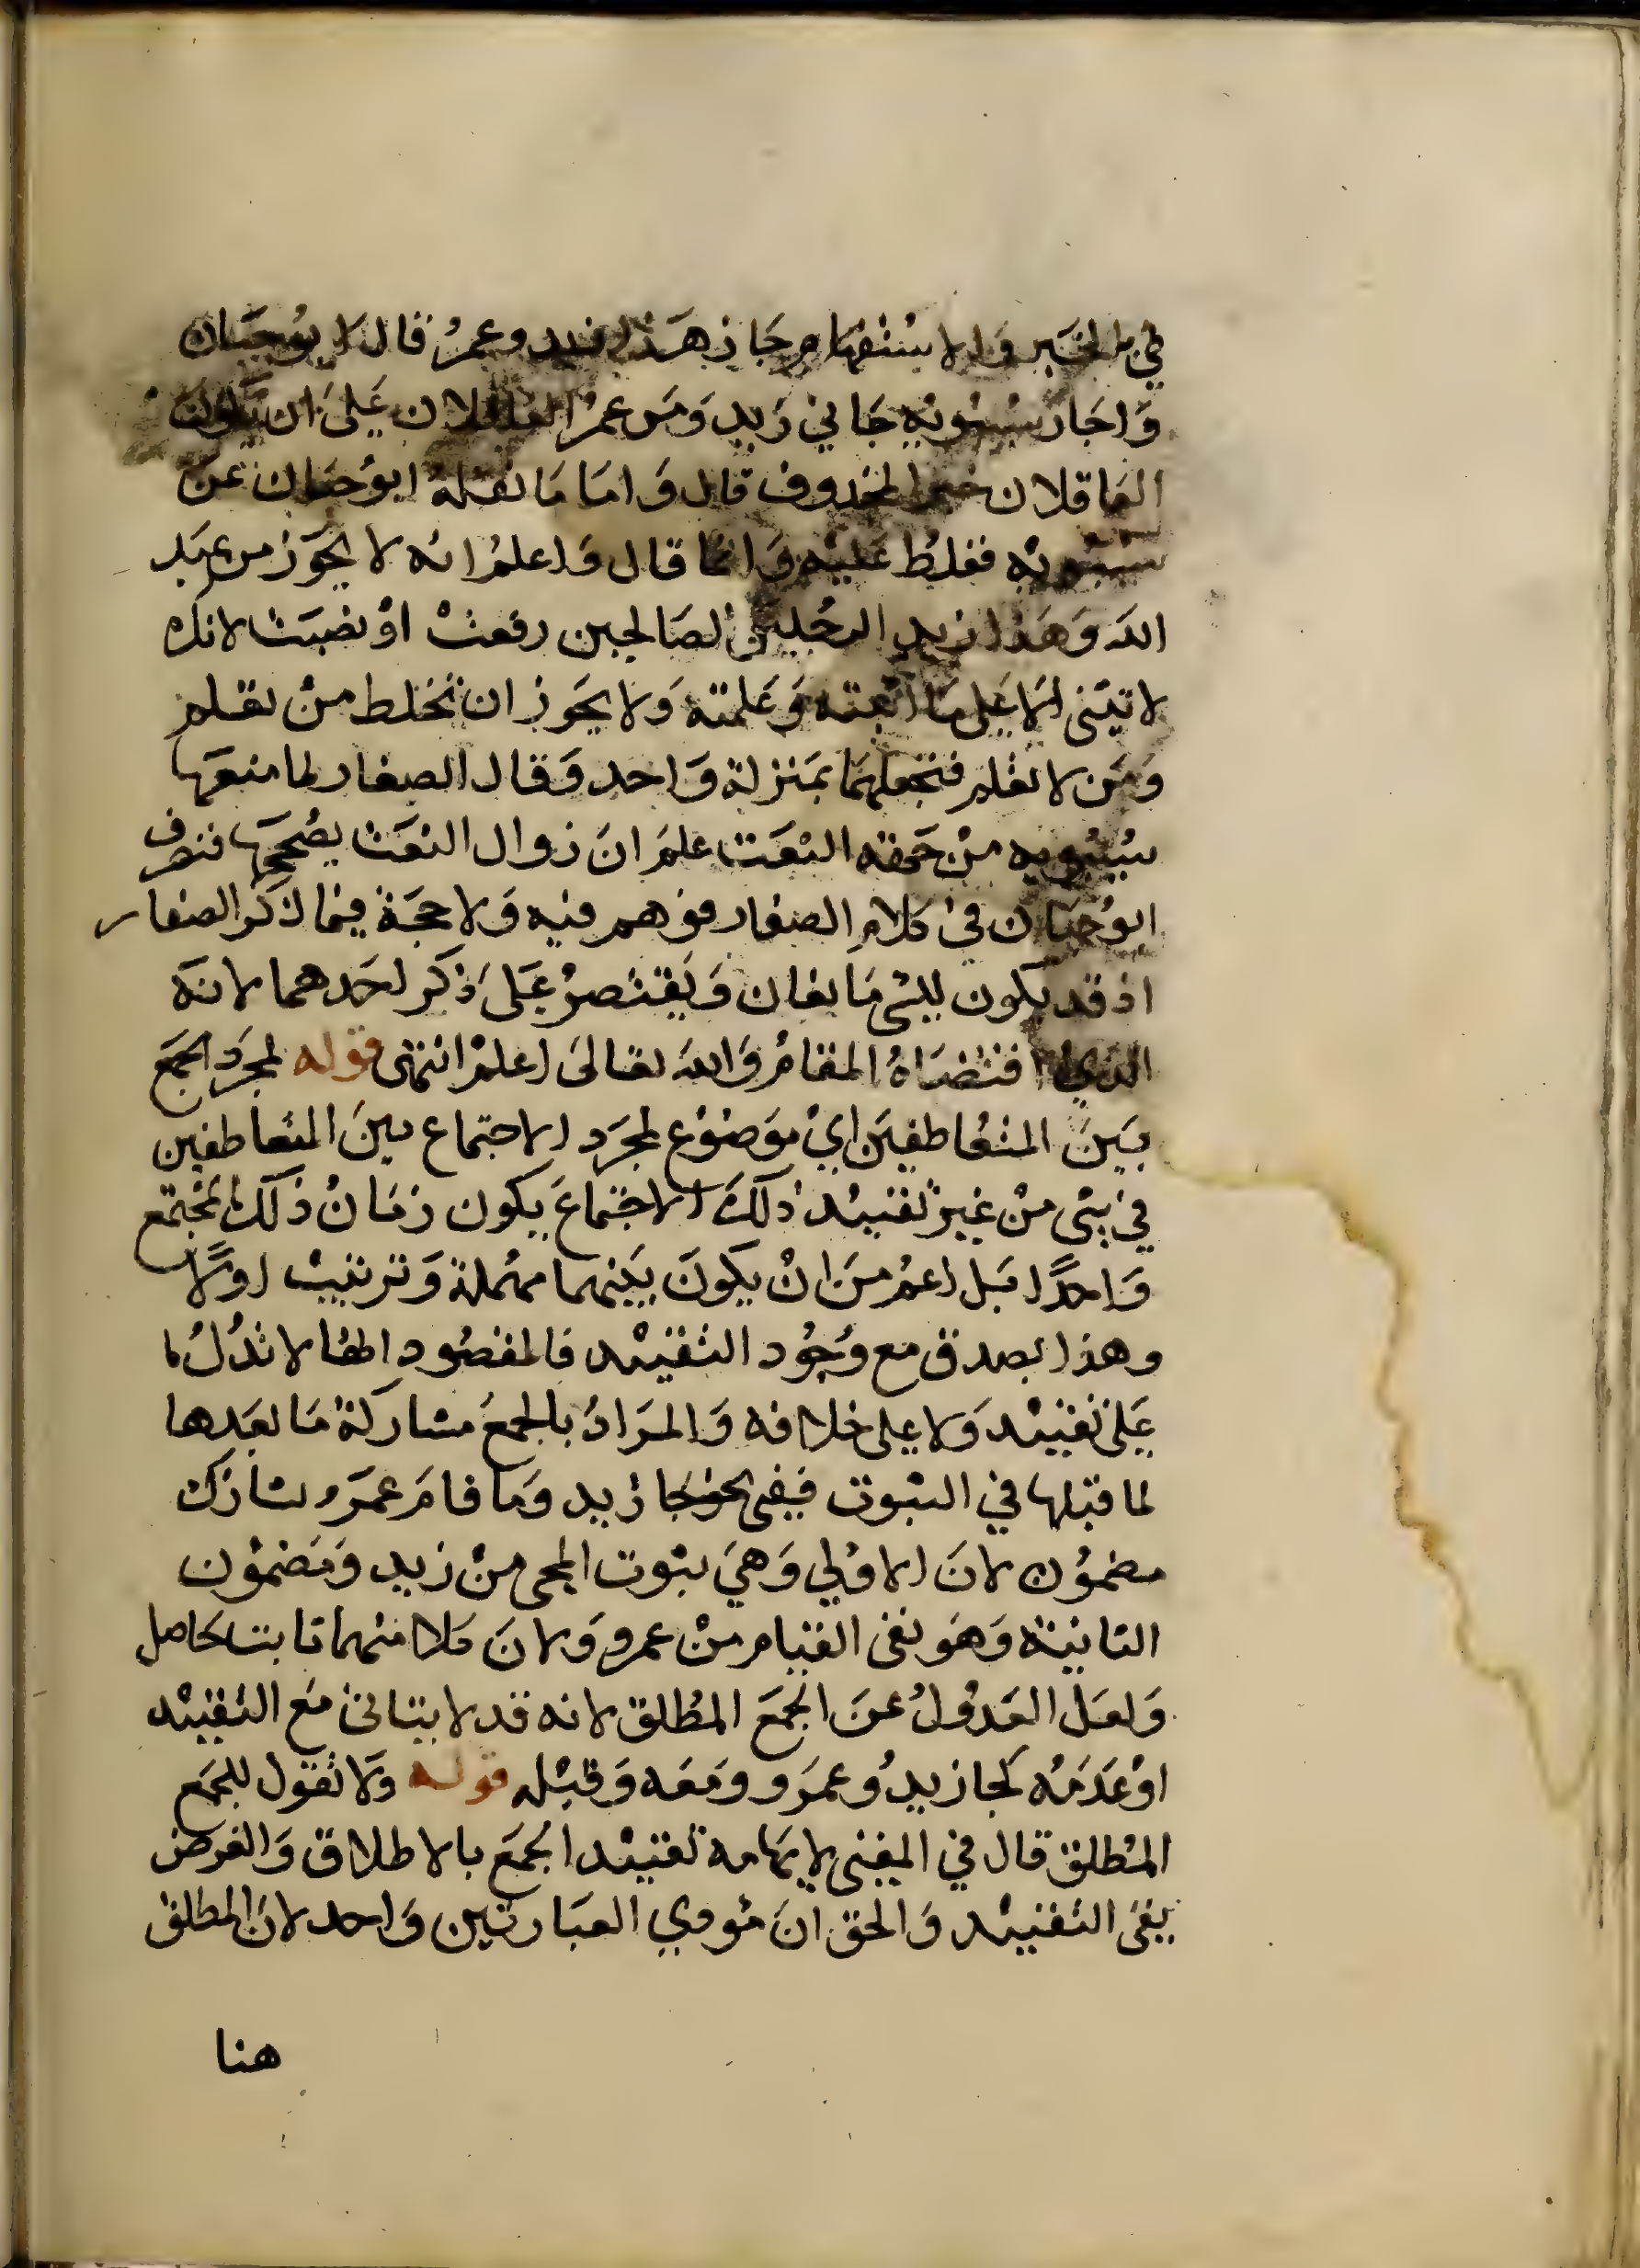 في الخبر والاستفهام جاز هذا زيد وعمر قال ابوحيان
واجاز سيبويه جاني زيد ومن عمر العاقلان على ان يكون
العاقلان خبر المحذوف قال واما ما نقله ابوحيان عن
سيبويه فغلط عليه وانما قال واعلم انه لا يجوز من عبد
الله وهذا زيد الرجلين الصالحين رفعت او نصبت لانك
لا تثنى الا على ما اثبته وعلمته ولا يجوز ان تخلط من تعلم
ومن لا تعلم فتجعلهما بمنزلة واحد وقال الصفار لما منعها
سيبويه من جهة النعت علم ان زوال النعت يصححها فتصرف
ابوحيان في كلام الصفار فوهم فيه ولا حجة فيما ذكر الصفار
اذ قد يكون للشي مانعان ويقتصر على ذكر احدهما لانه
الذي اقتضاه المقام والله تعالى اعلم انتهى قوله لمجرد الجمع
بين المتعاطفين اي موضوع لمجرد الاجتماع بين المتعاطفين
في شي من غير تقييد ذلك الاجتماع بكون زمان ذلك المجتمع
واحدا بل اعم من ان يكون بينهما مهملة وترتيب اولا
وهذا يصدق مع وجود التقييد فالمقصود انها لا تدل لا
على تقييد ولا على خلافه والمراد بالجمع مشاركة ما بعدها
لما قبلها في الثبوت ففي نحو جا زيد وما قام عمرو تشارك
مضمون لان الاولي وهي ثبوت المجى من زيد ومضمون
الثانية وهو نفى القيام من عمرو ولان كلا منهما ثابت حاصل
ولعل العدول عن الجمع المطلق لانه قد لا يتاتى مع التقييد
او عدمه كجا زيد وعمرو ومعه وقبله قوله ولا تقول للجمع
المطلق قال في المغنى لايهامه تقييد الجمع بالاطلاق والغرض
نفى التقييد والحق ان مودي العبارتين واحد لان المطلق
هنا